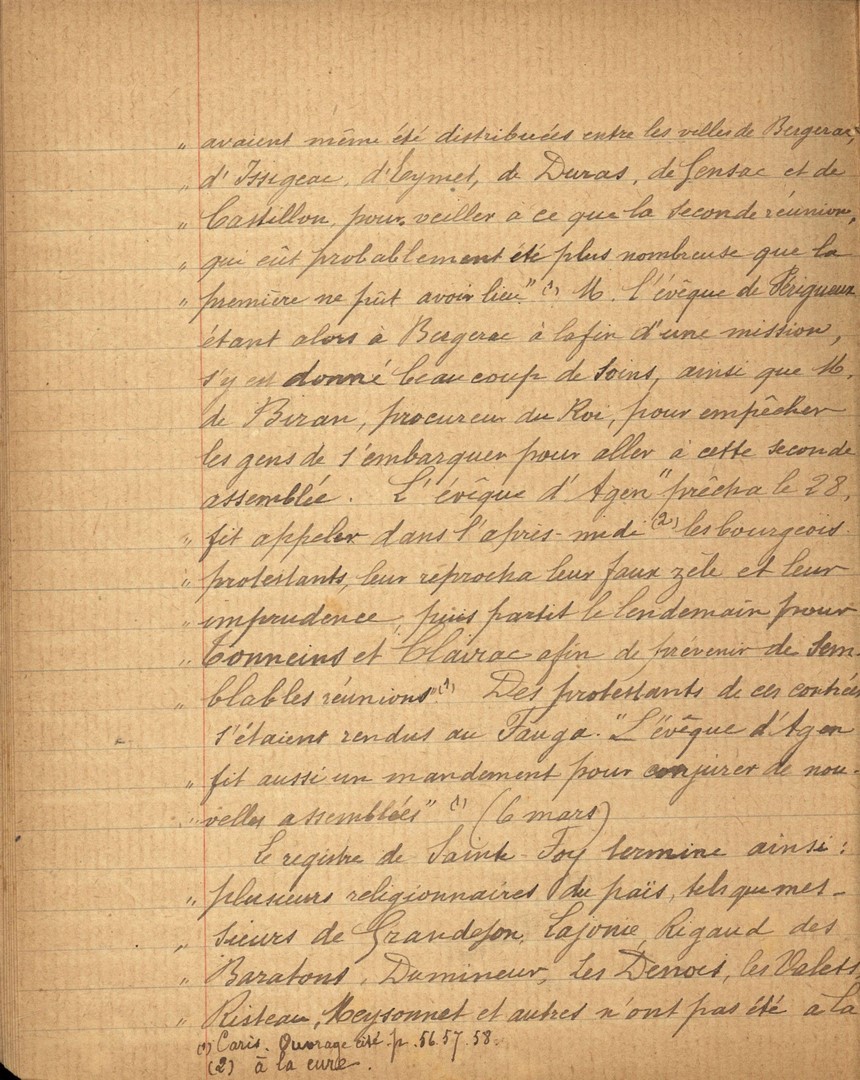 „ avaient même été distribuées entre les villes de Bergerac,
„ d'Issigeac, d'Eymet, de Duras, de Gensac et de
„ Castillon, pour veiller à ce que la seconde réunion,
„ qui eût probablement été plus nombreuse que la
„ première ne pût avoir lieu." (1) M. l'évêque de Périgueux
étant alors à Bergerac à la fin d'une mission,
s'y est donné beaucoup de soins, ainsi que M.
de Biran, procureur du Roi, pour empêcher
les gens de s'embarquer pour aller à cette seconde
assemblée. L'évêque d'Agen "prêcha le 28,
„ fit appeler dans l'après-midi (2) les bourgeois
„ protestants, leur reprocha leur faux zèle et leur
„ imprudence, puis partit le lendemain pour
„ Tonneins et Clairac afin de prévenir de sem-
„ blables réunions" (1) Des protestants de ces contrées
s'étaient rendus au Fauga. "L'évêque d'Agen
„ fit aussi un mandement pour conjurer de nou-
„ velles assemblées" (1) (6 mars)
Le registre de Sainte-Foy termine ainsi :
„ plusieurs religionnaires du païs, tels que mes-
„ sieurs de Grandefon, Lajonie, Rigaud des
„ Baratons, Dumineur, les Denois, les Valets,
„ Risteau, Meysonnet et autres n'ont pas été à la
(1) Caris. Ouvrage cité p. 56.57.58.
(2) à la cure.